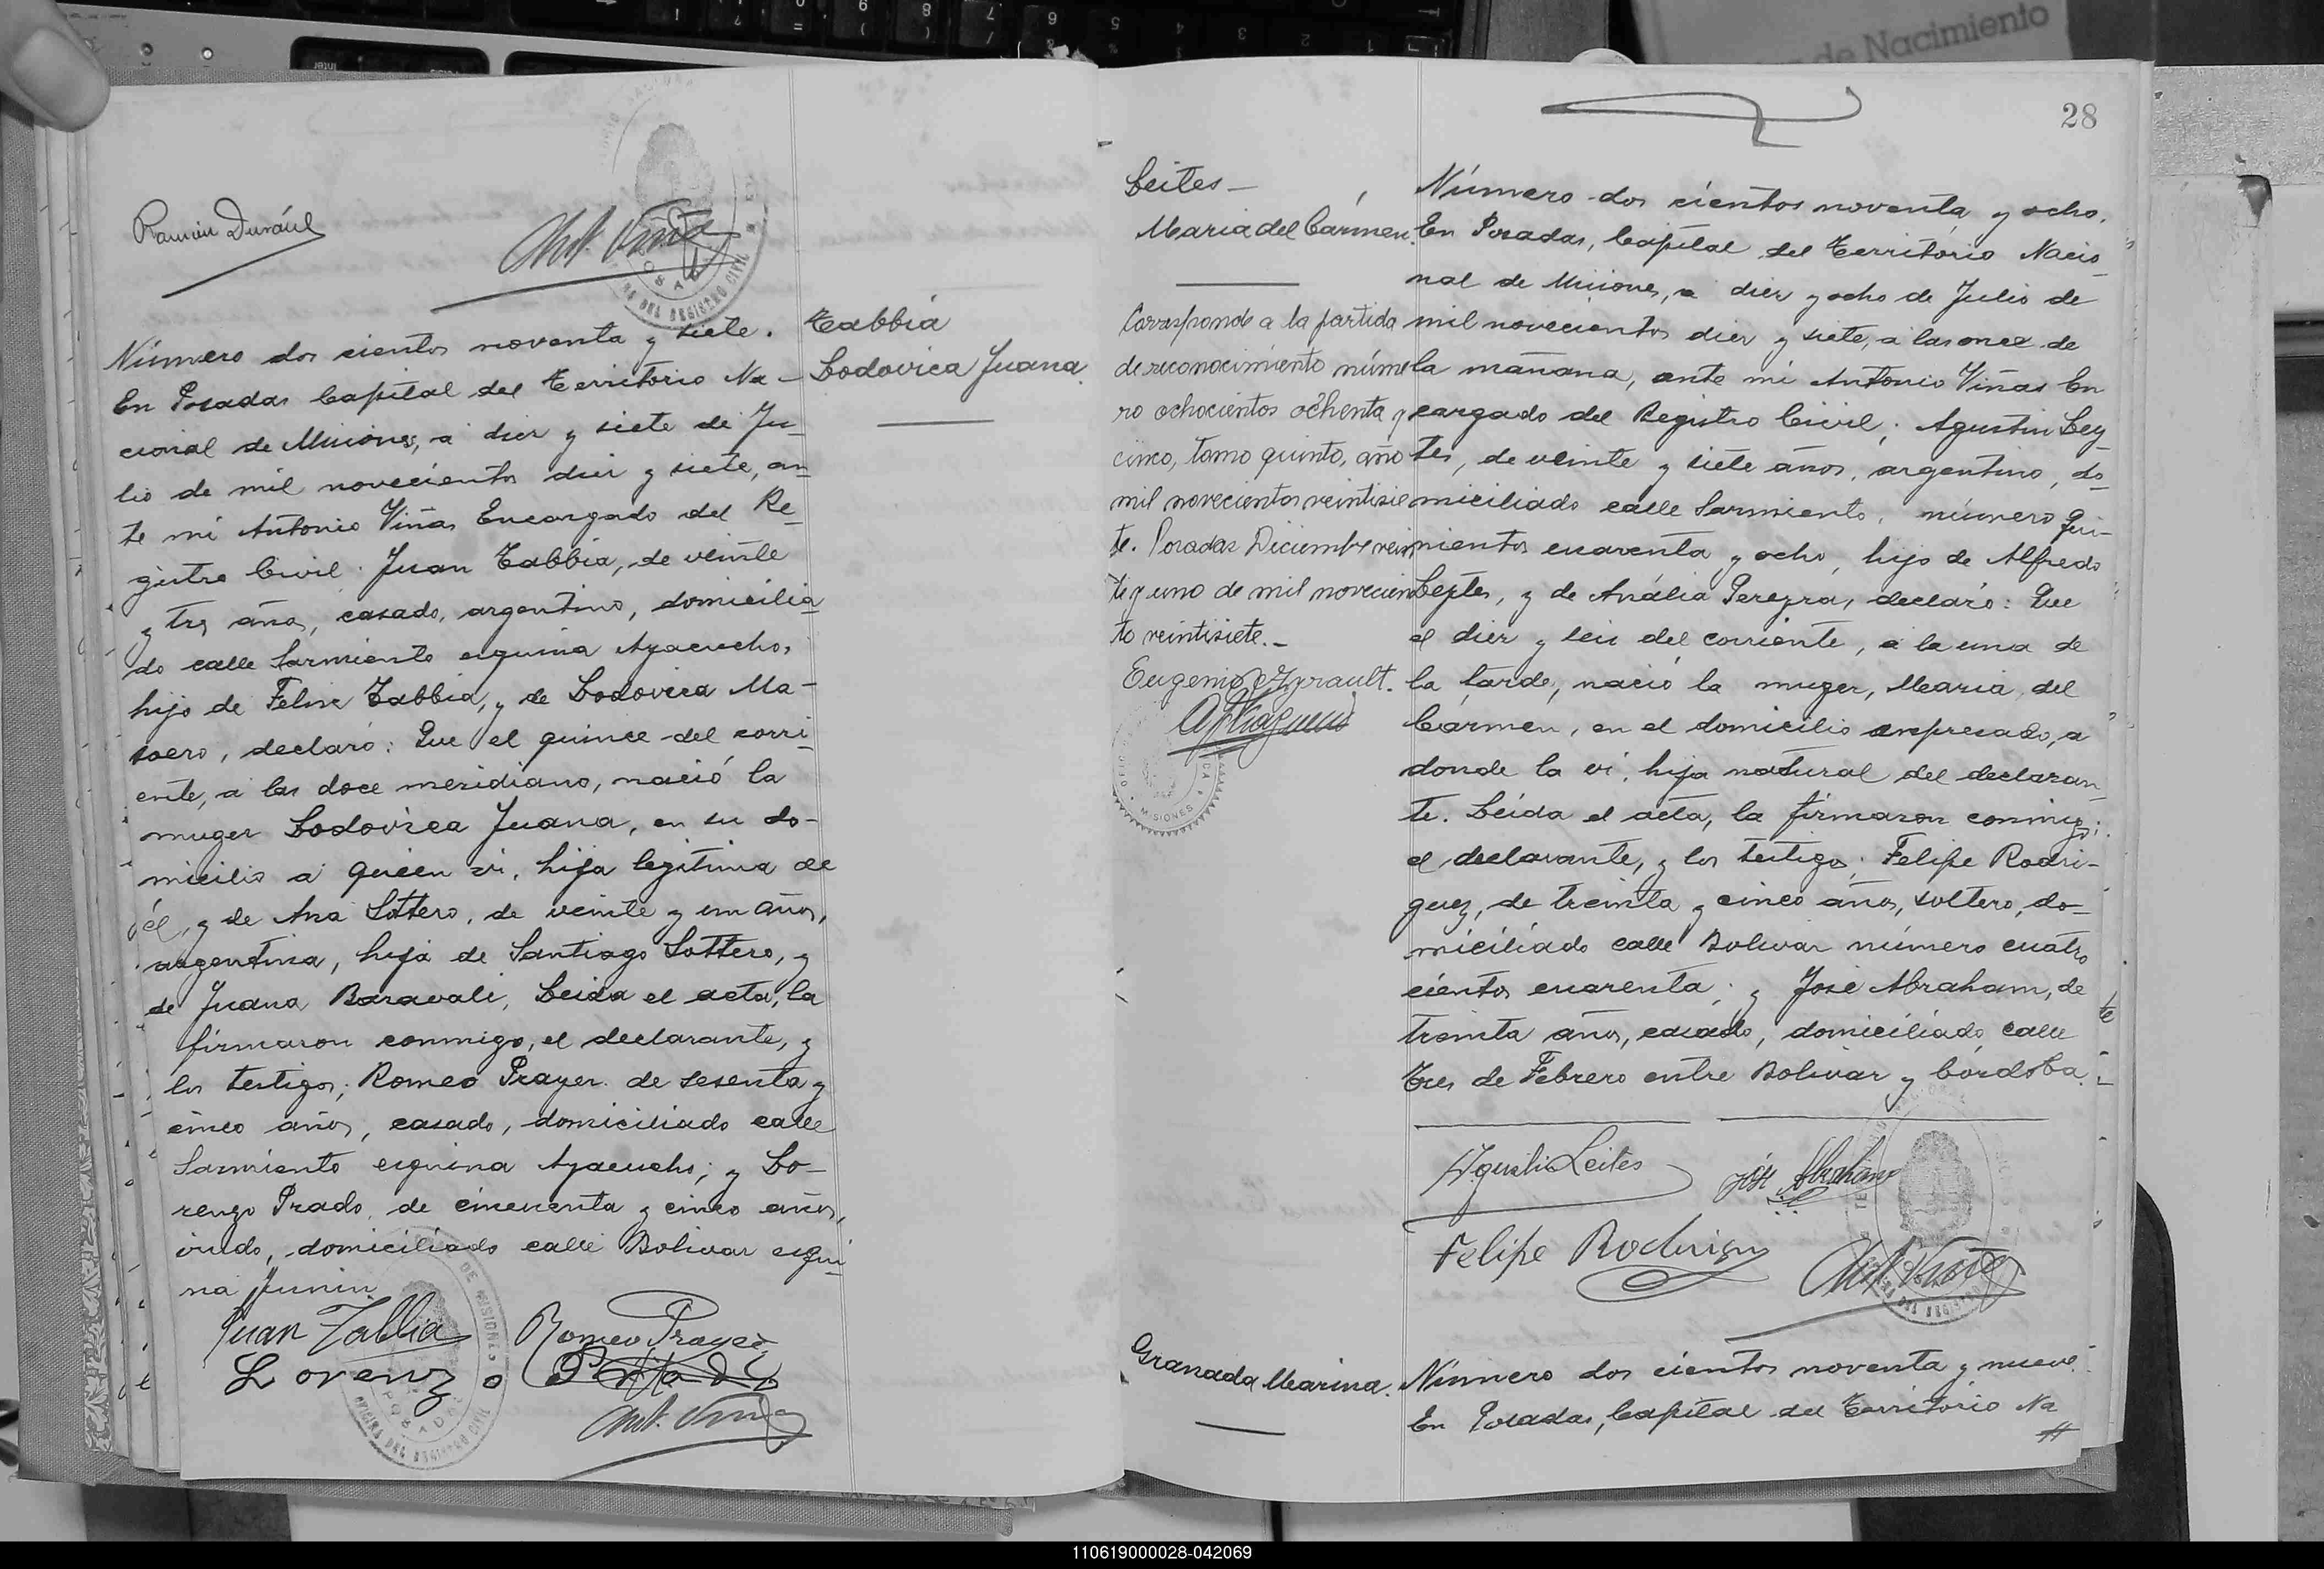 de Nacimiento
Ramón Duraúl
Ant. Viñas
Número dos cientos noventa y siete.
En Posadas Capital del Territorio Na-
cional de Misiones, a diez y siete de Ju-
lio de mil novecientos diez y siete, an
te mi Antonio Viñas Encargado del Re-
gistro Civil: Juan Tabbia, de veinte
y tres años, casado, argentino, domicilia
do calle Sarmiento esquina Ayacucho,
hijo de Felix Tabbia, y de Lodovica Ma-
soero, declaró: Que el quince del corri
ente, a las doce meridiano, nació la
muger Lodovica Juana, en su do-
micilio a quien vi, hija legitima de
él, y de Ana Sottero, de veinte y un años,
argentina, hija de Santiago Sottero, y
de Juana Baravali, Leida el acta, la
firmaron conmigo, el declarante, y
los testigos; Romeo Prayer de sesenta y
cinco años, casado, domiciliado calle
Sarmiento esquina Ayacucho; y Lo-
renzo Prado, de cincuenta y cinco años,
viudo, domiciliado calle Bolivar esqui
na Junin
Juan Tabbia
Romeo Prayer
Lorenzo Prado
Ant. Viñas
Tabbia
Lodovica Juana
28
Leites-
Maria del Cármen.
Corresponde a la partida
de reconocimiento núme
ro ochocientos ochenta y
cinco, tomo quinto, año
mil novecientos veintisie
te. Posadas Diciembre vein
tiy uno de mil novecien
to veintisiete.-
Número dos cientos noventa y ocho.
En Posadas, Capital del Territorio Nacio
nal de Misiones, a diez y ocho de Julio de
mil novecientos diez y siete, a las once de
la mañana, ante mi Antonio Viñas En
cargado del Registro Civil; Agustin Ley
tes, de veinte y siete años, argentino, do
miciliado calle Sarmiento, número qui-
nientos cuarenta y ocho, hijo de Alfredo
Leytes, y de Anália Pereyra, declaró: Que
el diez y seis del corriente, a la una de
la tarde, nació la muger, Maria del
Cármen, en el domicilio expresado, a
donde la vi, hija natural del declaran
te. Leida el acta, la firmaron conmigo;
el declarante, y los testigos; Felipe Rodri-
guez, de treinta y cinco años, soltero, do-
miciliado calle Bolivar número cuatro
cientos cuarenta; y José Abraham, de
treinta años, casado, domiciliado calle
Tres de Febrero entre Bolivar y Córdoba.
Agustin Leites
José Abraham
Felipe Rodriguez
Ant. Viñas
Granada Marina.
Número dos cientos noventa y nueve.
En Posadas, Capital del Territorio Na
110619000028-042069